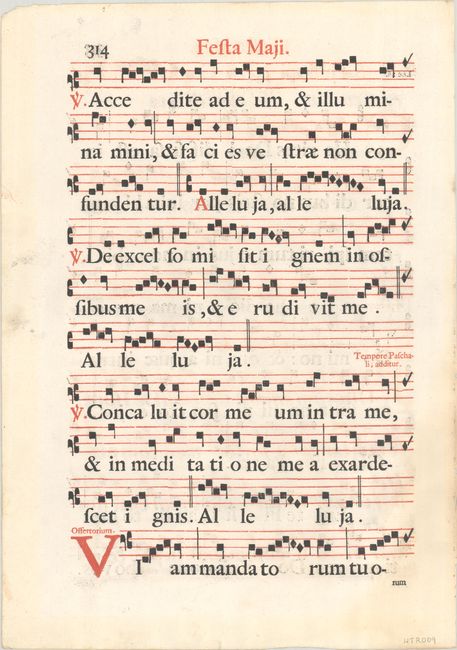 314 Festa Maji.
℣. Acce dite ad e um, & illu mi-
na mini, & fa ci es ve stræ non con-
funden tur. Alle lu ja, al le luja.
℣. De excel so mi sit i gnem in os-
sibus me is, & e ru di vit me.
Al le lu ja.
Tempore Pascha-
li, additur.
℣. Conca lu it cor me um in tra me,
& in medi ta ti o ne me a exarde-
scet i gnis. Al le lu ja.
Offertorium.
VI am manda to rum tu o-
rum
HTR009